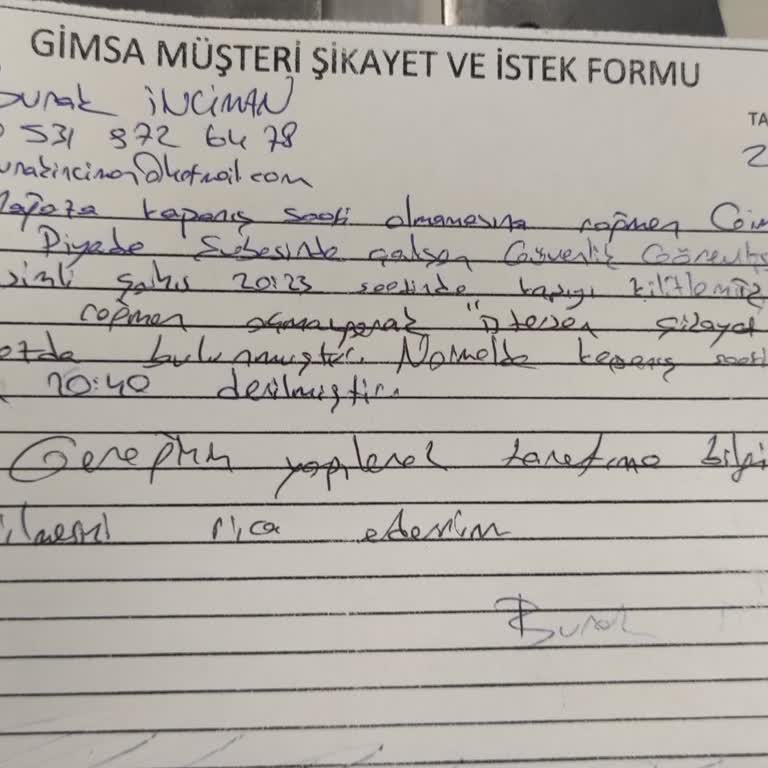 GİMSA MÜŞTERİ ŞİKAYET VE İSTEK FORMU
Burak İNCİMAN
TA
531 972 64 78
2
burakinciman@hotmail.com
Mağaza kapanış saati olmamasına rağmen Gim
Piyade Şubesinde çalışan Güvenlik Görevlis
isimli şahıs 20:23 saatinde kapıyı kilitlemiş
rağmen açmayarak "istersen şikayet
bulunmuştur. Normalde kapanış saati
20:40 denilmiştir.
Gereğinin yapılarak tarafıma bilgi
rica ederim
Burak